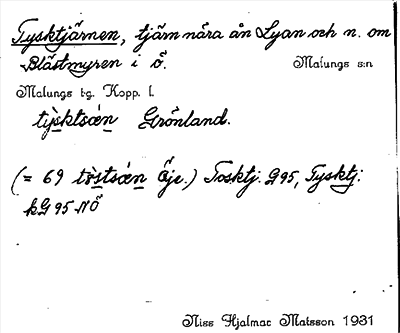 Tysktjärnen, tjärn nära ån Lyan och n. om
Blästmyren i ö. Malungs s:n
Malungs t-g. Kopp. l.
tỳsktsǽn Grönland.
(= 69 tòstsǽn Öje.) Tosktj. G95, Tysktj:
kG 95 NÖ
Niss Hjalmar Matsson 1931